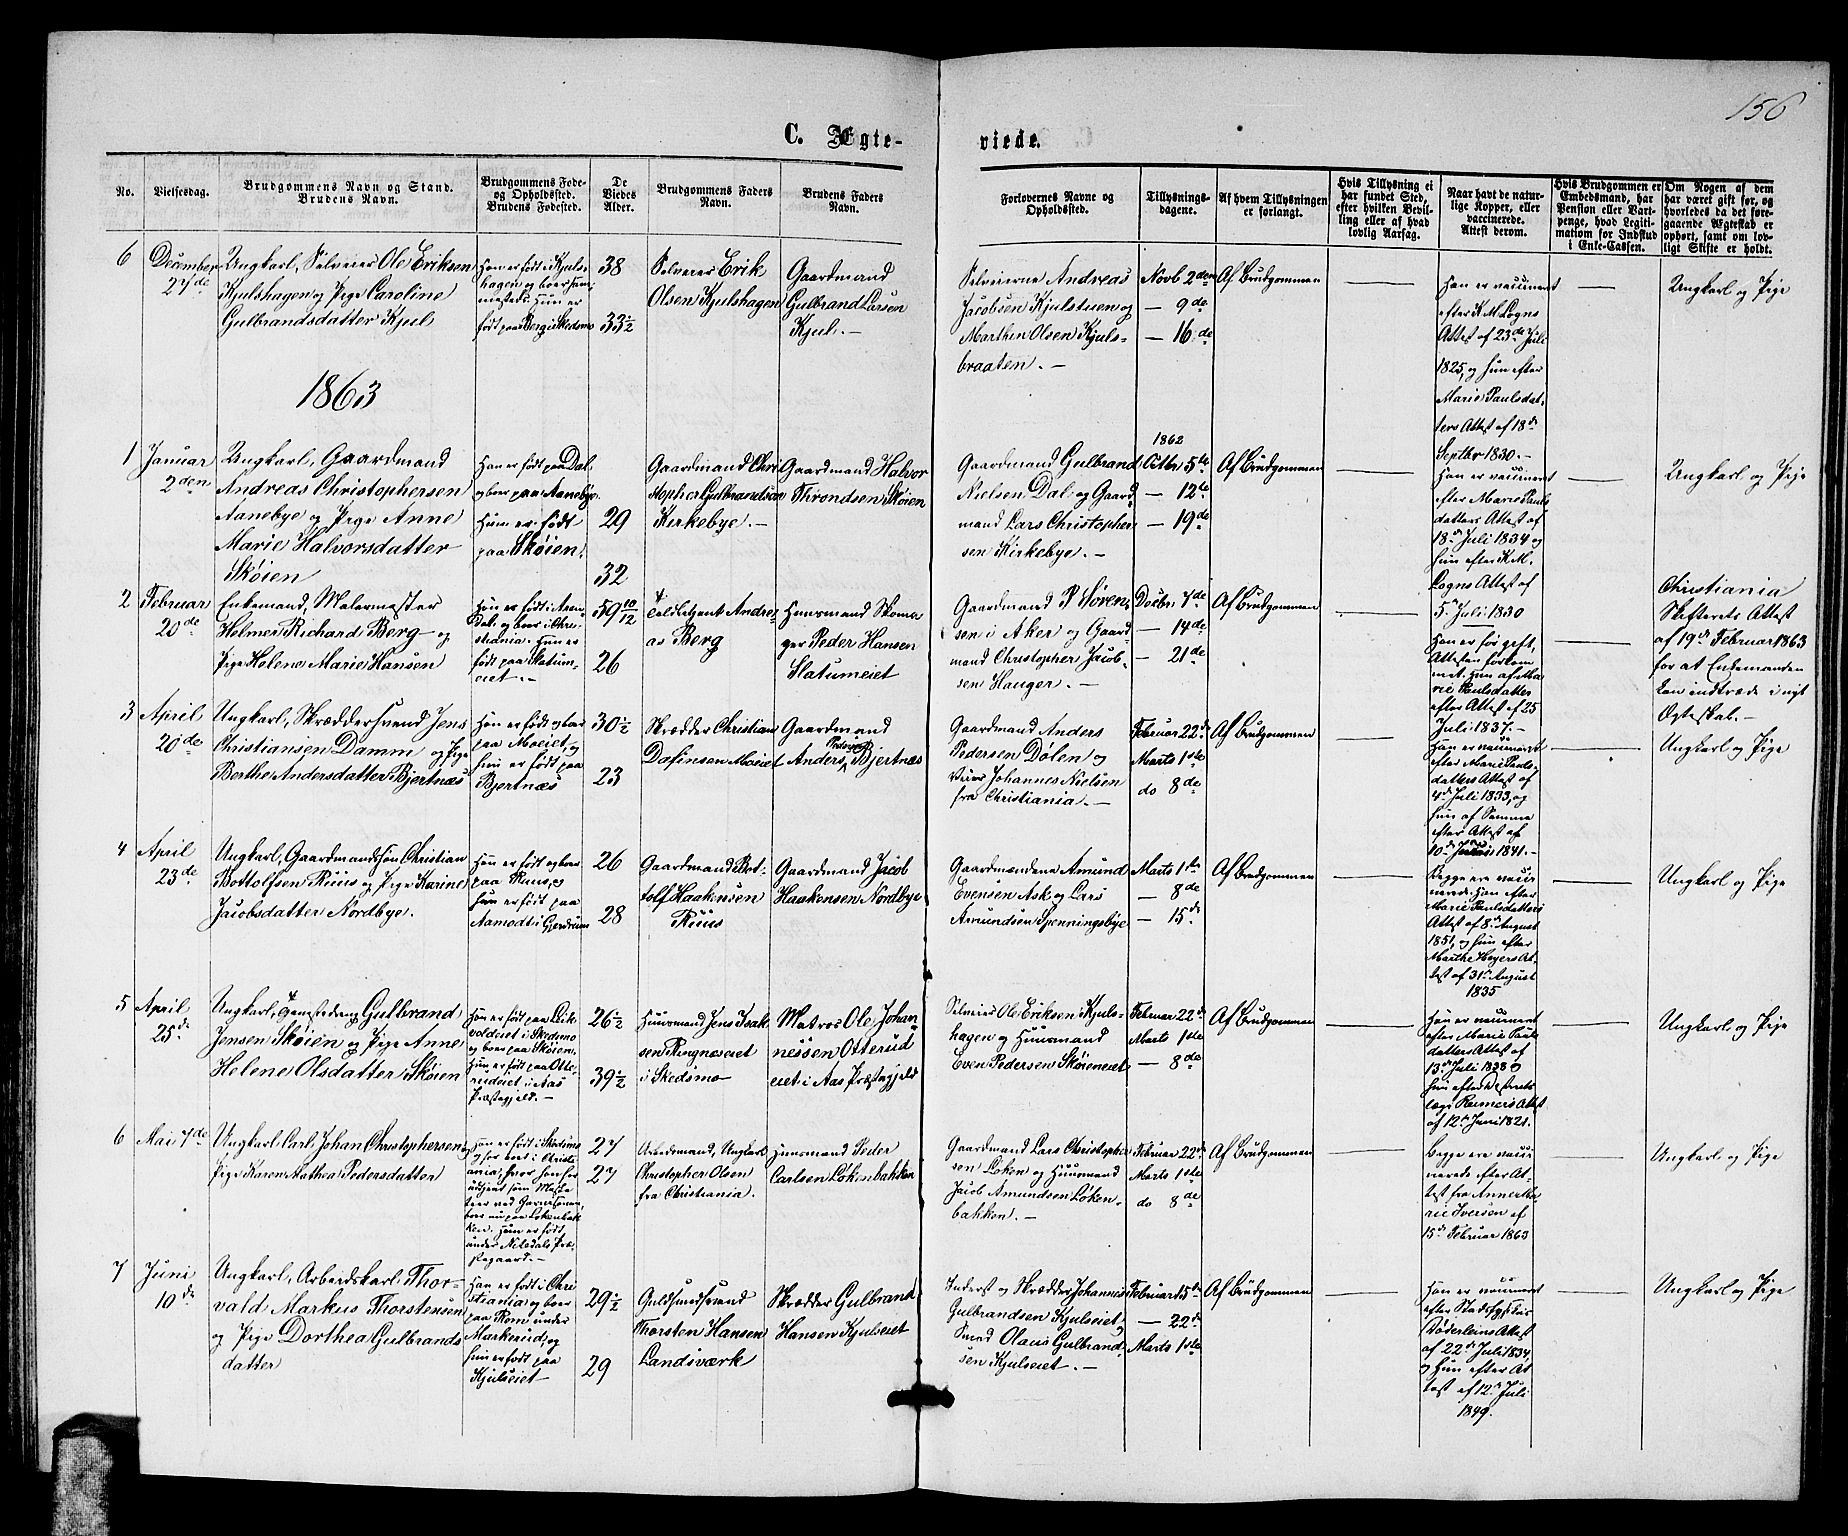 156
C. Ægte-
viede.
No.
Vielsesdag.
Brudgommens Navn og Stand.
Brudens Navn.
Brudgommens Føde-
og Opholdssted.
Brudens Fødested.
De
Viedes
Alder.
Brudgommens Faders
Navn.
Brudens Faders
Navn.
Forlovernes Navne og
Opholdssted.
Tillysnings-
dagene.
Af hvem Tillysningen
er forlangt.
Hvis Tillysning ei
har fundet Sted,
efter hvilken Bevil-
ling eller af hvad
lovlig Aarsag.
Naar havt de natur-
lige Kopper, eller
vaccinerede.
Attest derom.
Hvis Brudgommen er
Embedsmand, har
Pension eller Vart-
penge, hvad Legiti-
mation for Indskud
i Enke-Cassen.
Om Nogen af dem
har været gift før, og
hvorledes da det føre-
gaaende Ægteskab er
ophørt, samt om lov-
ligt Skifte er holdt.
6
December
27de
Ungkarl, Selveier Ole Eriksen
Kjulshagen og Pige Caroline
Gulbrandsdatter Kjul
Han er født i Kjuls-
hagen og boer sam-
mesteds. Hun er
født paa Berg i Skedsmo
38
33½
Selveier Erik
Olsen Kjulshagen
Gaardmand
Gulbrand Larsen
Kjul. —
Selveierne Andreas
Jacobsen Kjulstuen og
Marthin Olsen Kjuls-
braaten. —
Novb 2den
— 9de
— 16de
Af Brudgommen
Han er vaccineret
efter K. M. Logns
Attest af 23de Juli
1825, og hun efter
Marie Paulsdat-
ters Attest af 18de
Septbr 1830. —
Ungkarl og Pige
1863
1
Januar
2den
Ungkarl, Gaardmand
Andreas Christophersen
Aanebye og Pige Anne
Marie Halvorsdatter
Skøien
Han er født paa Dal
og boer paa Aanebye.
Hun er født
paa Skøien.
29
32
Gaardmand Chri
stopher Gulbrandsen
Kirkebye. —
Gaardmand Halvor
Throndsen Skøien
Gaardmand Gulbrand
Nielsen Dal og Gaard
mand Lars Christopher
sen Kirkebye. —
1862
Octbr 5te
— 12te
— 19de
Af Brudgommen
Han er vaccineret
efter Marie Pauls
datters Attest af
18de Juli 1834 og
hun efter K. M.
Logns Attest af
5te Juli 1830
Ungkarl og Pige
2
Februar
20de
Enkemand, Malermester
Helmer Richard Berg og
Pige Helene Marie Hansen
Han er født i Aren-
dal, og boer i Chri-
stiania. Hun er
født paa Slatum-
eiet. —
59 10/12
26
Toldbetjent Andre-
as Berg
Huusmand Skoma
ger Peder Hansen
Slatumeiet
Gaardmand P Søren-
sen i Aker og Gaard
mand Christopher Jacob-
sen Hauger. —
Decbr. 7de
— 14de
— 21de
Af Brudgommen
Han er før gift,
Attesten forkom
met. Hun af Ma
rie Paulsdatters
efter Attest af 25
Juli 1837. —
Christiania
Skifterets Attest
af 19de Februar 1863
for at Enkemanden
kan indtræde i nyt
Ægteskab. —
3
April
20de
Ungkarl, Skræddersvend Jens
Christiansen Damm og Pige
Berthe Andersdatter Bjertnæs
Han er født og boer
paa Moeiet, og
hun er født paa
Bjertnæs
30½
23
Skrædder Christian
Dafinsen Moeiet
Gaardmand
Anders Pedersen Bjertnæs
Gaardmand Anders
Pedersen Dølen og
Johannes Nielsen
fra Christiania. —
Februar 22de
Marts 1ste
do 8de
Af Brudgommen
Han er vaccineret
efter Marie Pauls-
datters Attest af
4de Juli 1833, og
hun af Samme
efter Attest af
10de Juni 1841. —
Ungkarl og Pige
4
April
23de
Ungkarl, Gaardmandssøn Christian
Bottolfsen Ruus og Pige Karine
Jacobsdatter Nordbye.
Han er født og boer
paa Ruus, og
hun er født paa
Aamodt i Gjerdrum
26
28
Gaardmand Bot-
tolf Haakensen
Ruus
Gaardmand Jacob
Haakensen Nordbye
Gaardmændene Amund
Evensen Ask og Lars
Amundsen Spenningsbye
Marts 1ste
— 8de
— 15de
Af Brudgommen
Begge ere vacci-
nerede. Han efter
Marie Paulsdatters
Attest af 8de August
1851, og hun efter
Marthe Høyers At-
test af 31te August
1835
Ungkarl og Pige
5
April
25de
Ungkarl, Tjenestedreng Gulbrand
Jensen Skøien og Pige Anne
Helene Olsdatter Skøien
Han er født paa Leik
voldeiet i Skedsmo
og boer paa Skøien.
Hun er født paa Otte-
rudeiet i Aas
Præstegjeld. —
26½
39½
Huusmand Jens Isak
sen Ringnæseiet
i Skedsmo
Matros Ole Johan
nessen Otterud
eiet i Aas Præstegjeld
Selveier Ole Eriksen Kjuls-
hagen og Huusmand
Even Pedersen Skøieneiet
Februar 22de
Marts 1ste
— 8de
Af Brudgommen
Han er vaccineret
efter Marie Pauls
datters Attest af
13de Juli 1838 og
hun efter Districts
læge Reimers Attest
af 12te Juni 1821.
Ungkarl og Pige
6
Mai 7de
Ungkarl Carl Johan Christophersen og
Pige Karen Mathea Pedersdatter
Han er født i Skedsmo
og før boet i Christi
ania, hvor han har
udtjent som
ved Garnisonen,
boer nu paa Løkenbak
ken. Hun er født
under Nitedals Præ-
stegaard. —
27
27
Arbeidsmand, Ungkarl
Christopher Olsen
fra Christiania.
Huusmand Peder
Carlsen Løkenbakken
Gaardmand Lars Christopher
sen Løken og Huusmand
Jacob Amundsen Løken-
bakken. —
Februar 22de
Marts 1ste
do 8de
Af Brudgommen
Begge ere vacci
nerede efter At-
test fra Anne Ma
rie Iversen af
15de Februar 1863
Ungkarl og Pige
7
Juni
10de
Ungkarl, Arbeidskarl Thor-
vald Markus Thorstensen
og Pige Dorthea Gulbrands
datter
Han er født i Chri
stiania og boer
paa Rom under
Markerud, og
hun er født paa
Kjulseiet
29½
29
Guldsmedsvend
Thorsten Hansen
Landsværk
Skrædder Gulbrand
Hansen Kjulseiet
Inderst og Skrædder Johannes
Gulbrandsen Kjulseiet og
Smed Olaus Gulbrand-
sen Kjulseiet. —
Februar 15de
— 22de
Marts 1ste
Af Brudgommen
Han er vaccineret
efter Stadsphysicus
Døderleins Attest
af 22de Juli 1834
og Hun efter At
test af 12te Juli
1849.
Ungkarl og Pige